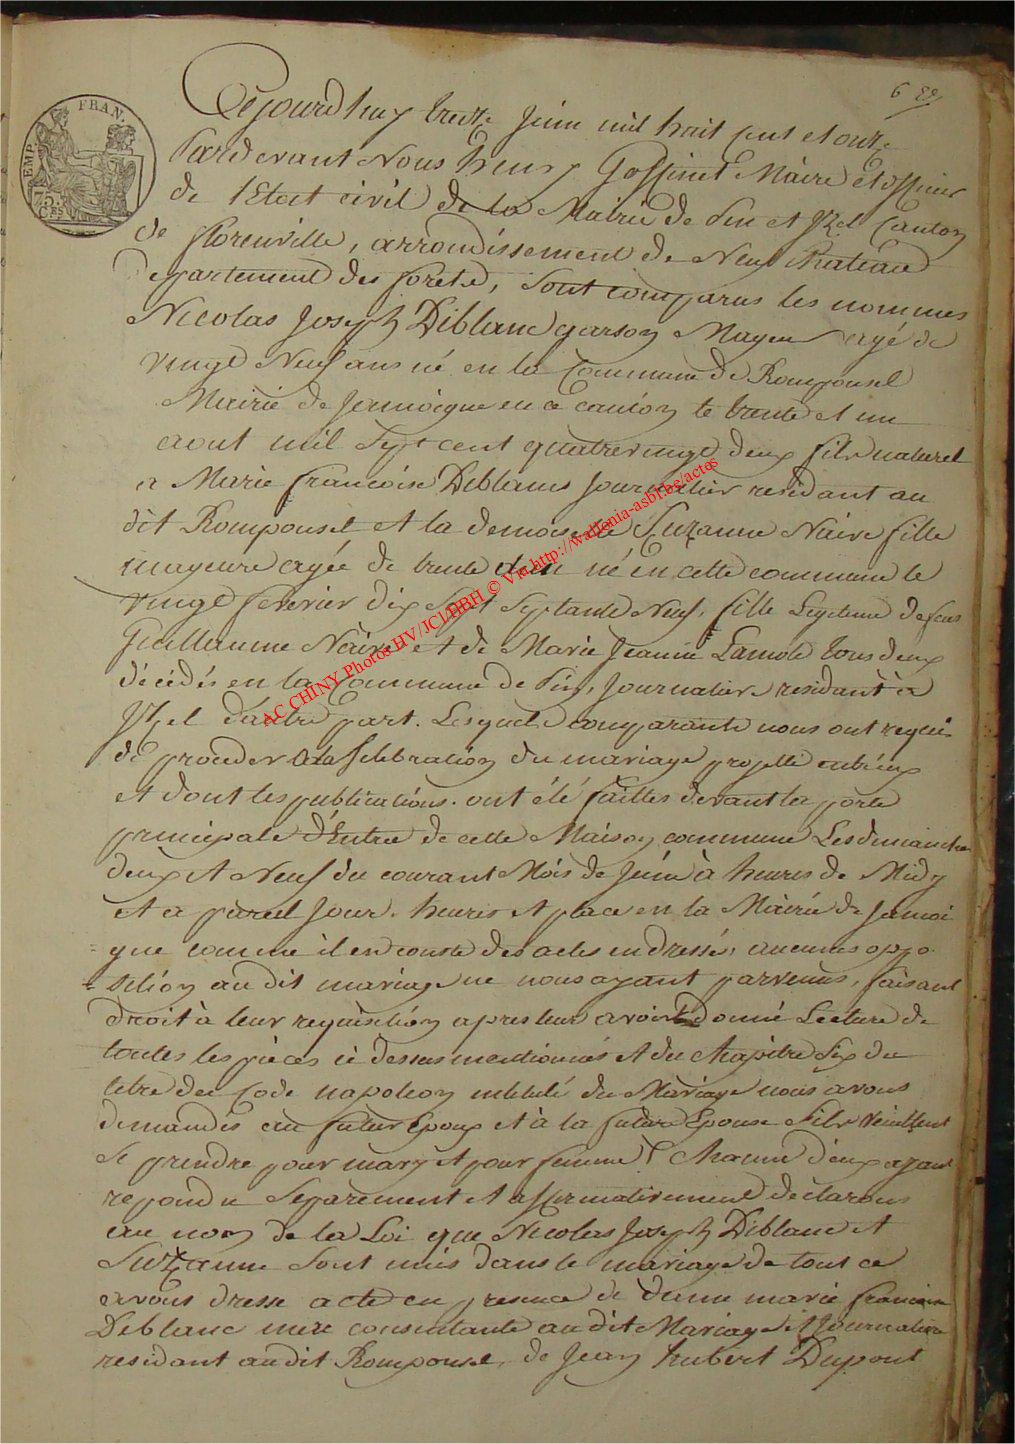 6
FRAN.
EMP.
75.
Ces
Cejourd huy treize Juin mil huit cent et onze
Pardevant Nous henry Goffinet Maire et officier
de l'Etat civil de la Mairie de Pin et Izel Canton
de florenville, arrondissement de Neufchateau
Departement des forets, sont comparus les nommes
Nicolas Joseph Diblanc garson Mayeur agé de
vingt Neuf ans né en la Commune de Romponsel
Mairie de Jamoigne en ce canton le trente et un
aout mil sept cent quatrevingt deux fils naturel
a Marie francoise Deblanc Journalier residant au
dit Romponsel et la demoiselle Suzanne Naive fille
mayeure agée de trente deux né en cette commune le
vingt fevrier dix sept septante Neuf, fille Legitime de feus
Guillaume Naive et de Marie Jeanne Lamole tous deux
décédés en la Commune de Pin, Journaliere residant à
Izel d'autre part. Lesquels comparants nous ont requis
de proceder a la selebration du mariage projetté entr'eux
et dont les publications ont été faittes devant la porte
principale d'Entree de cette Maison commune Les dimanches
deux et Neuf du courant Mois de Juin à heures de Midy
et a pareil Jour, heures et place en la Mairie de Jamoi
gne comme il en conste des actes en dressés, aucunes oppo
sition au dit mariage ne nous ayant parvenus, faisant
droit à leur requisition apres leur avoir donné Lecture de
toutes les pièces ci dessus mentionnés et du chapitre six du
titre du Code napoleon intitulé du Mariage nous avons
demandés au futur Epoux et à la future Epouse s'ils veuillent
se prendre pour mary et pour femme, Chacun d'eux ayant
repondu separement et affirmativement declarons
au nom de la Loi que Nicolas Joseph Diblanc et
Suzanne sont unis dans le mariage de tout ce
avons dresse acte en presence de dame marie francoise
Deblanc mere consentante au dit Mariage et Journaliere
residant au dit Romponsel, de Jean hubert Dupont
AC CHINY Photos HV/JCLDBH © Via http://wallonia-asbl.be/actes